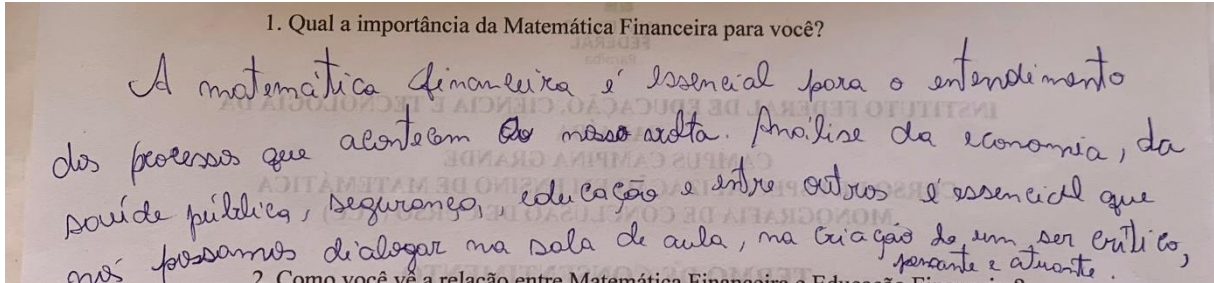 1. Qual a importância da Matemática Financeira para você?
A matemática financeira é essencial para o entendimento
dos processos que acontecem ao nosso volta. Análise da economia, da
saúde pública, segurança, educação e entre outros é essencial que
nós possamos dialogar na sala de aula, na criação de um ser crítico,
pensante e atuante.
2. Como você vê a relação entre Matemática Financeira e Educação Financeira?